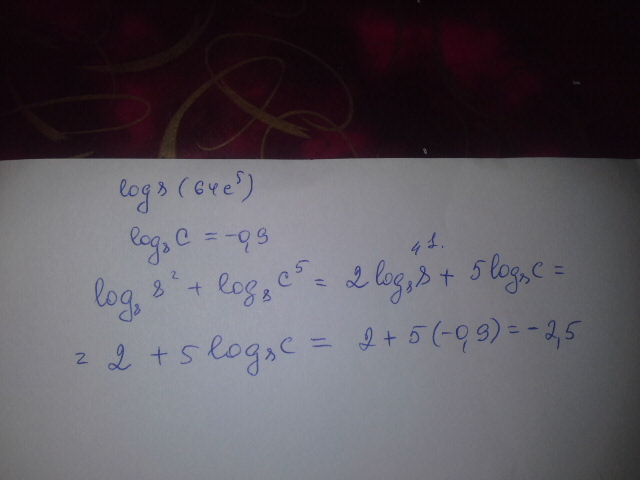 log₈(64c⁵)
log₈c = -0,9
log₈8² + log₈c⁵ = 2log₈8 + 5log₈c =
= 2 + 5log₈c = 2 + 5(-0,9) = -2,5